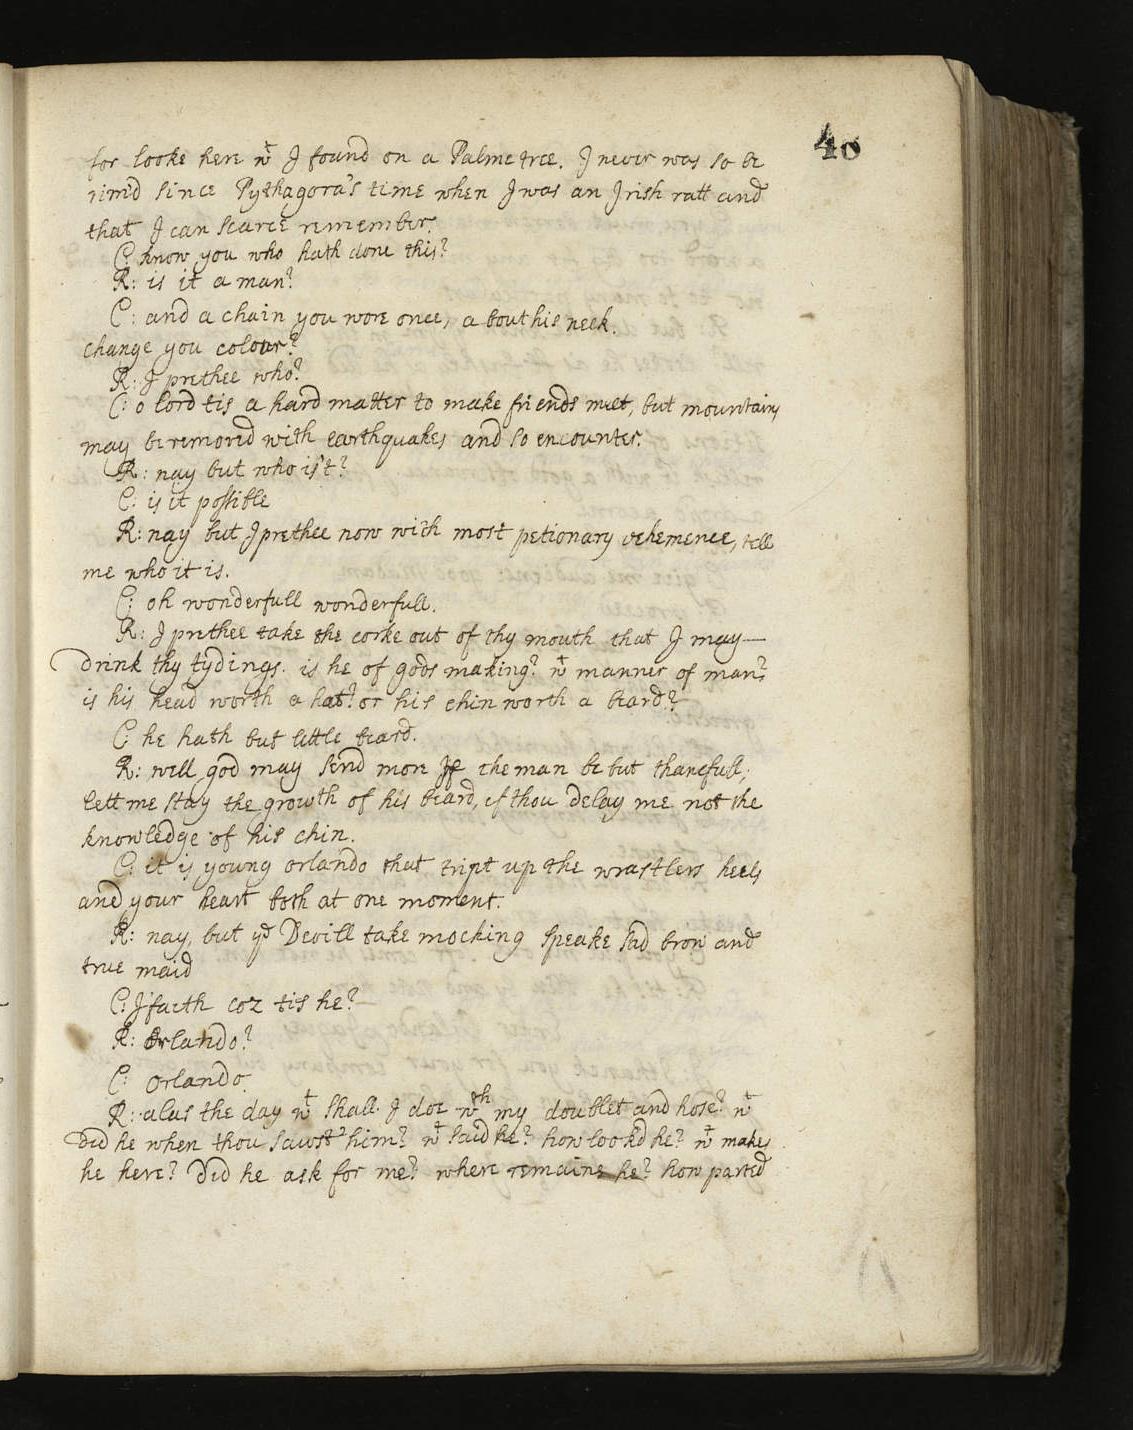 40
for looke here wt I found on a Palme tree. I never was so be
rim'd since Pythagora's time when I was an Irish ratt and
that I can scarce remember.
C: know you who hath done this?
R: is it a man?
C: and a chain you wore once, a bout his neck.
change you colour?
R: I prethee who?
C: o lord tis a hard matter to make friends meet, but mountains
may be removed with earthquakes and so encounter.
R: nay but who is't?
C: is it possible
R: nay but I prethee now with most petionary vehemence, tell
me who it is.
C: oh wonderfull wonderfull.
R: I prethee take the corke out of thy mouth that I may—
drink thy tydings. is he of gods making? wt manner of man?
is his head worth a hat? or his chin worth a beard?
C he hath but little beard.
R: well god may send more If the man be but thancfull;
lett me stay the growth of his beard, if thou delay me not the
knowledge of his chin.
C: it is young orlando that tript up the wrastlers heels
and your heart both at one moment.
R: nay, but ye Devill take mocking speake sad brow and
true maid
C: I'faith coz tis he?
R: Orlando?
C: orlando.
R: alas the day wt shall I doe wth my doublet and hose? wt
did he when thou sawst him? wt said he? how lookd he? wt makes
he here? did he ask for me? where remains he? how parted